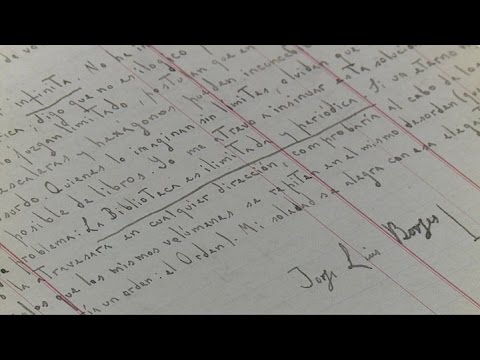 de vo
infinita. No he
ica; digo que no es ilógico
o juzgan limitado, postulan que en
escaleras y hexágonos pueden inconce
surdo. Quienes lo imaginan sin límites, olvidan que
posible de libros. Yo me atrevo a insinuar esta solució
problema: La Biblioteca es ilimitada y periódica. Si un eterno
la atravesara en cualquier dirección, comprobaría al cabo de los
los que los mismos volúmenes se repiten en el mismo desorden
ía un orden: el Orden). Mi soledad se alegra con esa elega
Jorge Luis Borges